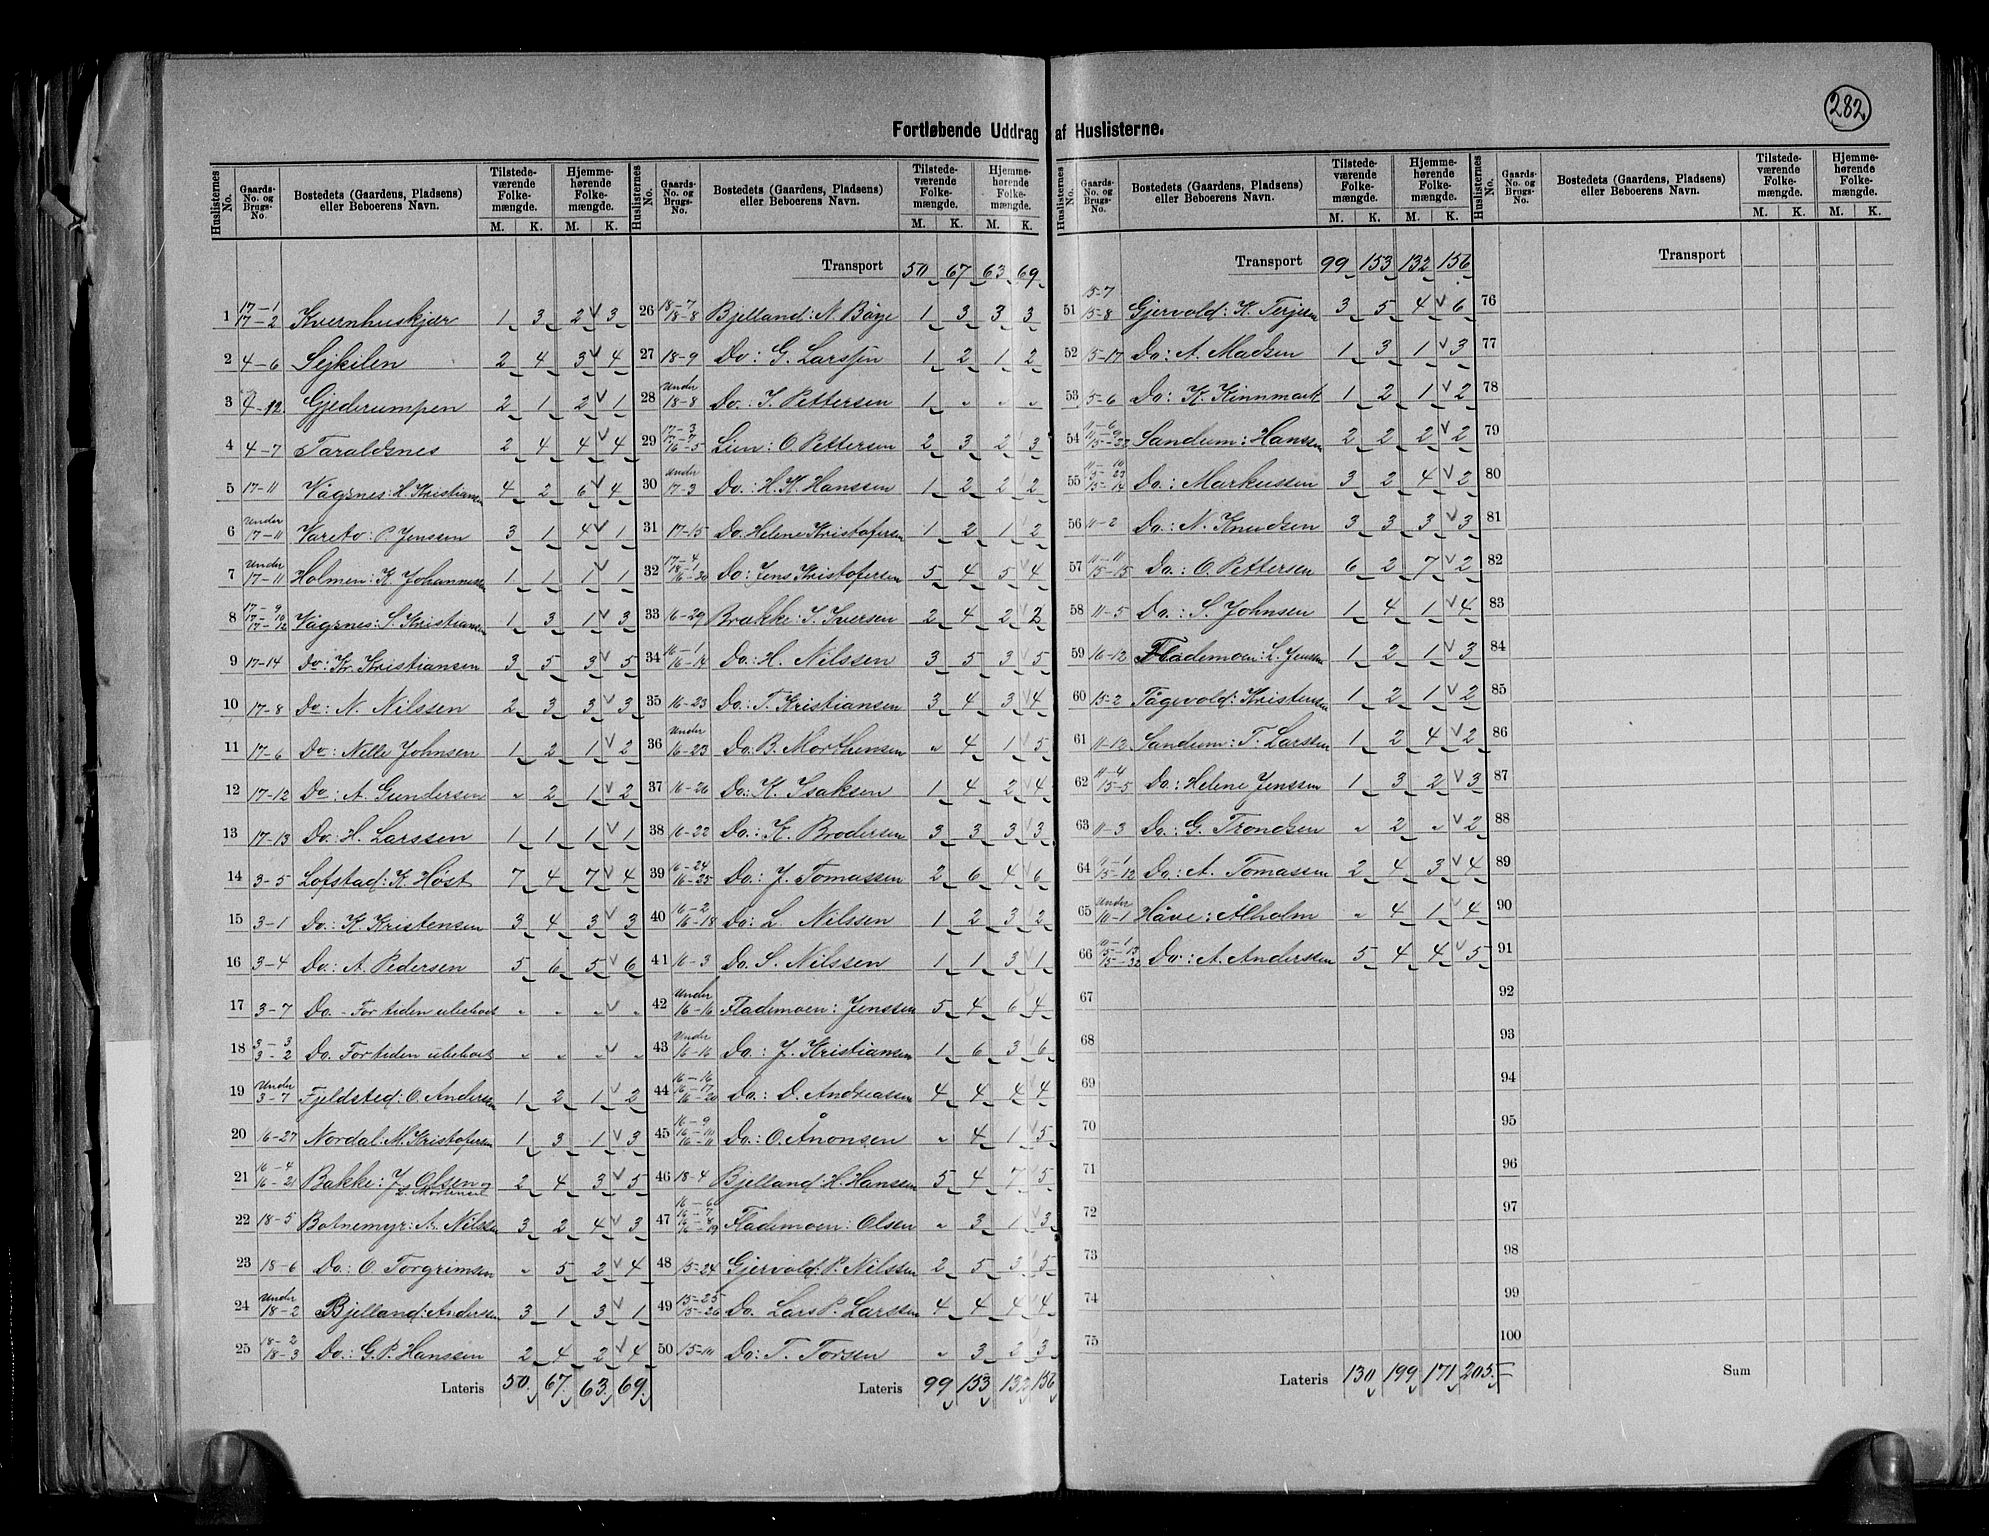 282
Fortløbende Uddrag af Huslisterne.
Huslisternes No. Gaards-No. og Brugs-No. Bostedets (Gaardens, Pladsens) eller Beboerens Navn. Tilstedeværende Folkemængde. M. K. Hjemmehørende Folkemængde. M. K.
1 17-1 17-2 Kvernhuskjær 1 3 2 3
2 4-6 Sejkilen 2 4 3 4
3 4-12 Gjederumpen 2 1 2 1
4 4-7 Taraldsnes 2 4 4 4
5 17-11 Vågsnes: H. Kristiansen 4 2 6 4
6 Under 17-11 Vareto: P. Jenssen 3 1 4 1
7 Under 17-11 Holmen: K. Johannessen 1 1 1 1
8 17-9 17-10 17-12 Vågsnes: S. Kristiansen 1 3 1 3
9 17-14 Do: Kr. Kristiansen 3 5 3 5
10 17-8 Do: N. Nilssen 2 3 3 3
11 17-6 Do: Nelle Johnsen 1 2 1 2
12 17-12 Do: A. Gundersen " 2 1 2
13 17-13 Do: H. Larssen 1 1 1 1
14 3-5 Lofstad: K. Høst 7 4 7 4
15 3-1 Do: K. Kristensen 3 4 3 3
16 3-4 Do: A. Pedersen 5 6 5 6
17 3-7 Do - For tiden ubeboet " " " "
18 3-3 3-2 Do. For tiden ubeboet " " " "
19 Under 3-7 Fjeldsted: O. Andersen 1 2 1 2
20 16-27 Nordal: M. Kristofersen 1 3 1 3
21 16-4 16-21 Bakke: J. Olsen 2 4 3 5
22 18-5 Botnemyr: A. Nilssen 3 2 4 3
23 18-6 Do: O. Torgrimsen " 5 2 4
24 Under 18-2 Bjelland: Anderssen 3 1 3 1
25 18-2 18-3 Do: G. P. Hanssen 2 4 2 4
Lateris 50 67 63 69
Huslisternes No. Gaards-No. og Brugs-No. Bostedets (Gaardens, Pladsens) eller Beboerens Navn. Tilstedeværende Folkemængde. M. K. Hjemmehørende Folkemængde. M. K.
Transport 50 67 63 69
26 18-7 18-8 Bjelland: N. Böye 1 3 3 3
27 18-9 Do: G. Larssen 1 2 1 2
28 Under 18-8 Do: S. Pettersen 1 " " "
29 17-3 17-7 16-5 Lien: O. Pettersen 2 3 2 3
30 Under 17-3 Do: H. K. Hanssen 1 2 2 2
31 17-15 Do: Helene Kristofersen 1 2 1 2
32 17-4 18-1 16-20 Do: Jens Kristofersen 5 4 5 4
33 16-29 Brakke: S. Iversen 2 4 2 2
34 16-1 16-14 Do: H. Nilssen 3 5 3 5
35 16-23 Do: T. Kristiansen 3 4 3 4
36 Under 16-23 Do. B. Morthensen " 4 1 5
37 16-26 Do: K. Isaksen 1 4 2 4
38 16-22 Do: K. Brodersen 3 3 3 3
39 16-24 16-25 Do: J. Tomassen 2 6 4 6
40 16-2 16-18 Do: L. Nilssen 1 2 3 2
41 16-3 Do. S. Nilssen 1 1 3 1
42 Under 16-16 Flademoen: Jenssen 5 4 6 4
43 Under 16-16 Do: J. Kristiansen 1 6 3 6
44 16-16 16-17 16-20 Do: D. Andreassen 4 4 4 4
45 16-9 16-10 16-11 Do: O. Ånonsen " 4 1 5
46 18-4 Bjelland: H. Hanssen 5 4 7 5
47 16-6 16-7 16-8 16-19 Flademoen: Olsen " 3 1 3
48 15-24 Gjervold: P. Nilssen 2 5 3 5
49 15-25 15-26 Do. Lars P. Larssen 4 4 4 4
50 15-10 Do: T. Torsen " 3 2 3
Lateris 99 153 132 156
Huslisternes No. Gaards-No. og Brugs-No. Bostedets (Gaardens, Pladsens) eller Beboerens Navn. Tilstedeværende Folkemængde. M. K. Hjemmehørende Folkemængde. M. K.
Transport 99 153 132 156
51 15-7 15-8 Gjervold: K. Terjesen 3 5 4 6
52 15-17 Do: A. Madsen 1 3 1 3
53 15-6 Do: K. Kinnmark 1 2 1 2
54 Sandum: Hanssen 2 2 2 2
55 Do: Markussen 3 2 4 2
56 11-2 Do: N. Knudsen 3 3 3 3
57 11-11 15-15 Do: O. Pettersen 6 2 7 2
58 11-5 Do: S. Johnsen 1 4 1 4
59 16-12 Flademoen: L. Jenssen 1 2 1 3
60 15-2 Tågevold: Kristensen 1 2 1 2
61 11-12 Sandum: T. Larssen 1 2 4 2
62 11-4 15-5 Do: Helene Jenssen 1 3 2 3
63 11-3 Do: G. Trondsen " 2 " 2
64 15-12 Do: A. Tomassen 2 4 3 4
65 Under 10-1 Håve: Ålholm " 4 1 4
66 10-1 15-13 15-32 Do: A. Anderssen 5 4 4 5
67
68
69
70
71
72
73
74
75
Lateris 130 199 171 205
Huslisternes No. Gaards-No. og Brugs-No. Bostedets (Gaardens, Pladsens) eller Beboerens Navn. Tilstedeværende Folkemængde. M. K. Hjemmehørende Folkemængde. M. K.
Transport
76
77
78
79
80
81
82
83
84
85
86
87
88
89
90
91
92
93
94
95
96
97
98
99
100
Sum